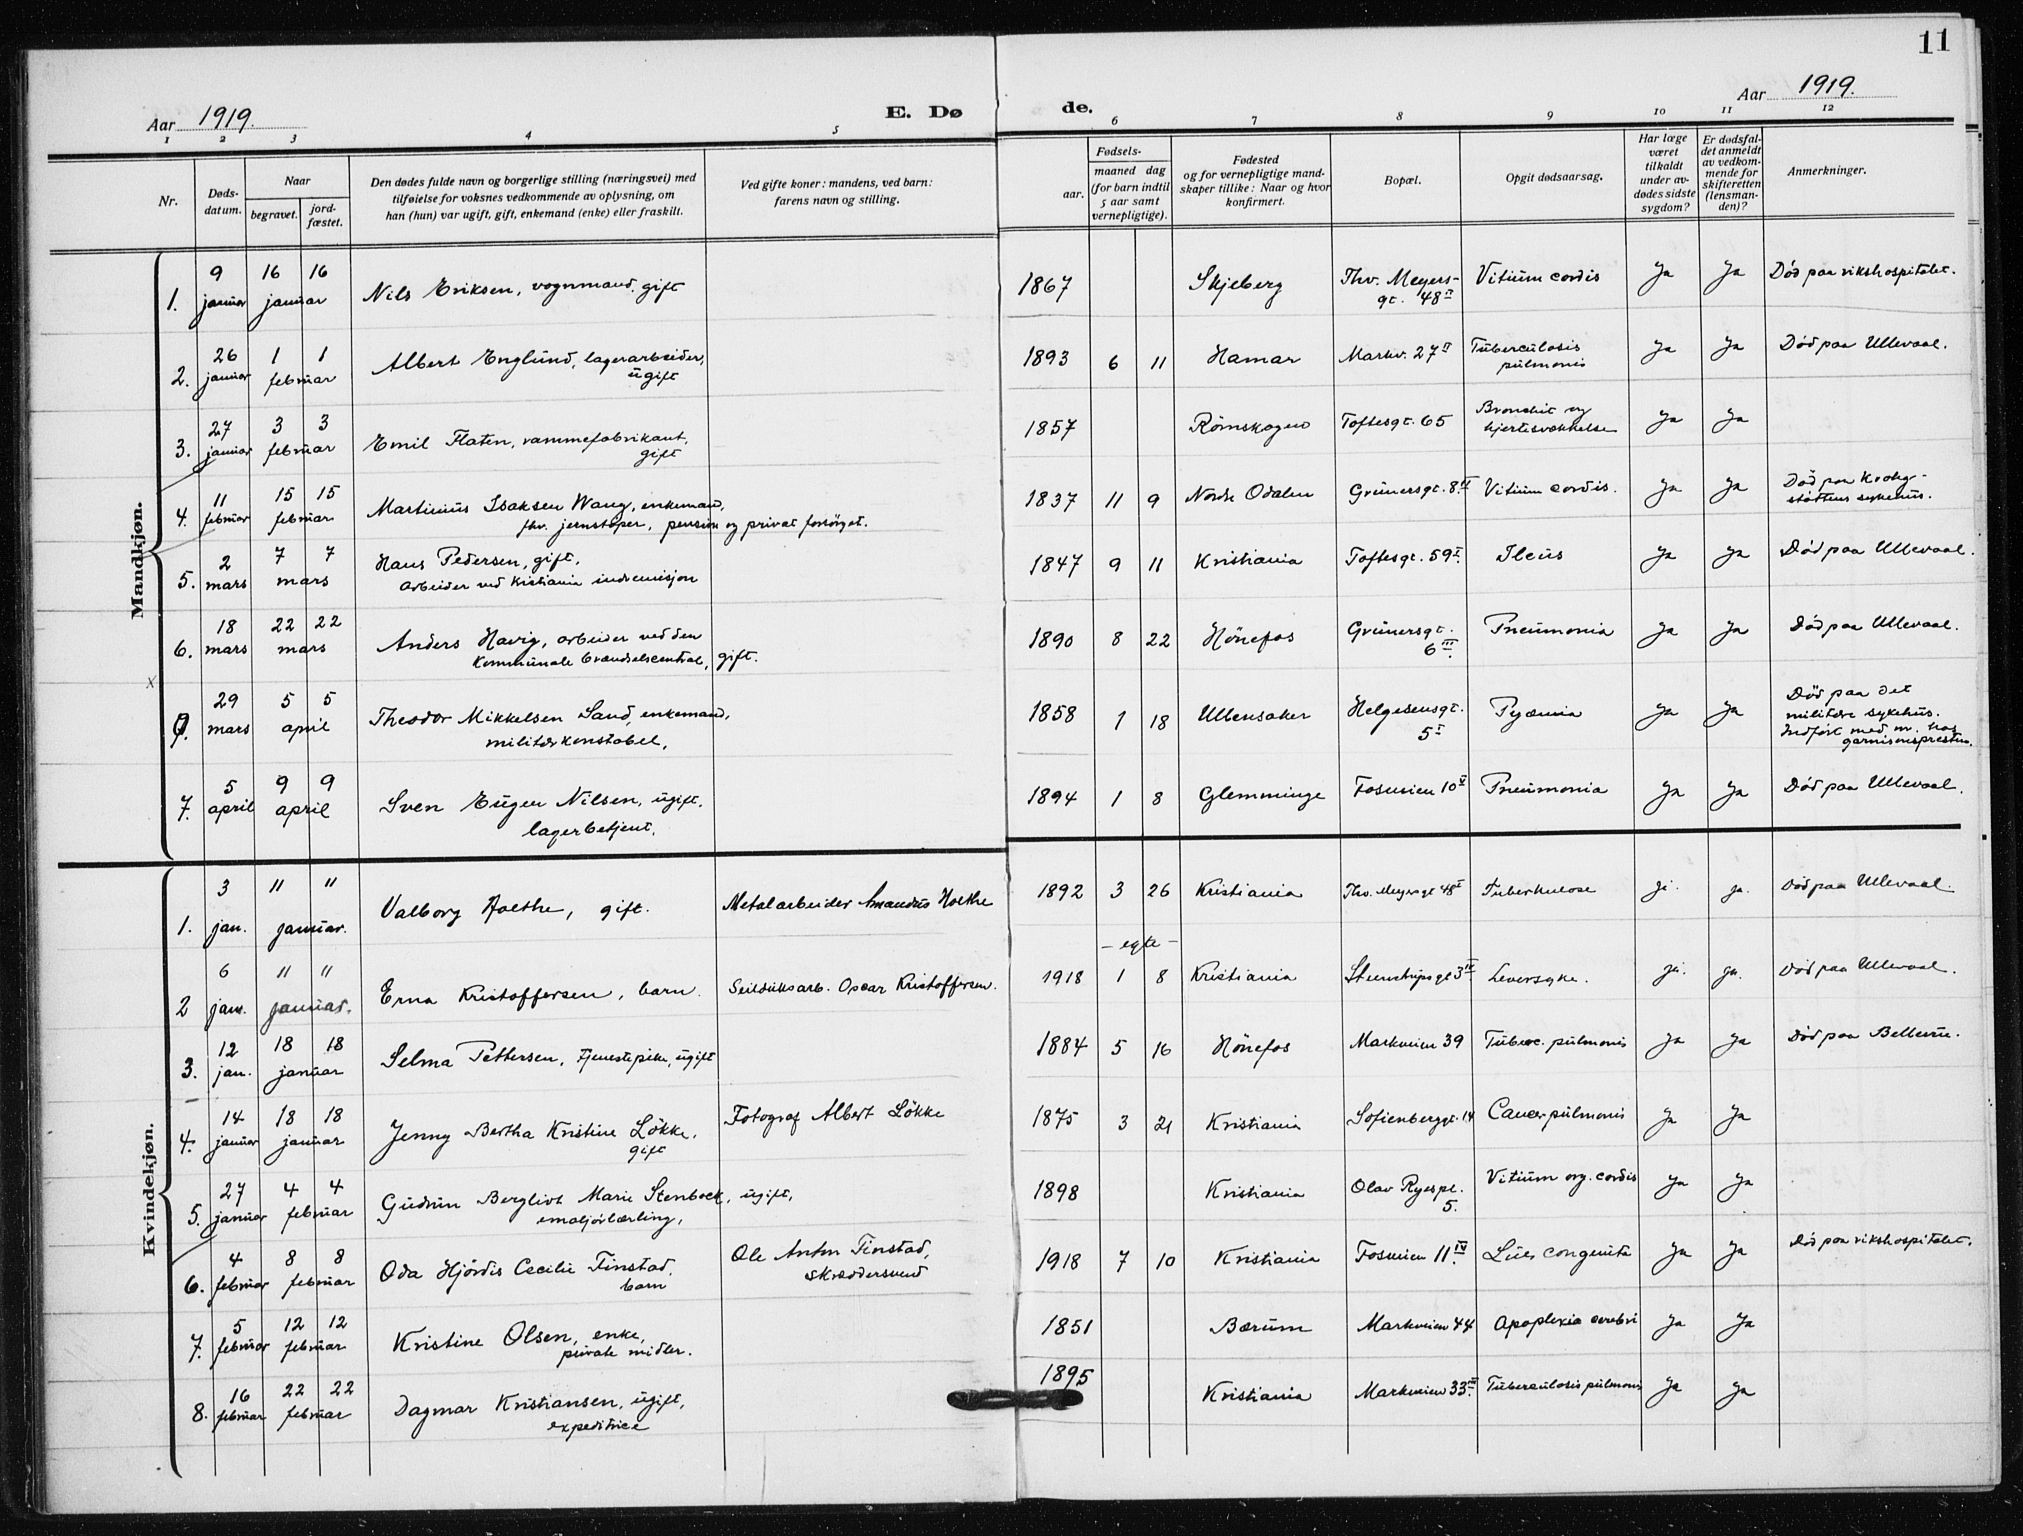 11
Aar 1919.
E. Dø de.
Aar 1919.
1 2 3 4 5 6 7 8 9 10 11 12
Nr.
Døds-
datum.
Naar
begravet.
jord-
fæstet.
Den dødes fulde navn og borgerlige stilling (næringsvei) med
tilføielse for voksnes vedkommende av oplysning, om
han (hun) var ugift, gift, enkemand (enke) eller fraskilt.
Ved gifte koner: mandens, ved barn:
farens navn og stilling.
Fødsels-
aar.
maaned dag
(for barn indtil
5 aar samt
vernepligtige).
Fødested
og for vernepligtige mand-
skaper tillike: Naar og hvor
konfirmert.
Bopæl.
Opgit dødsaarsag.
Har læge
været
tilkaldt
under av-
dødes sidste
sygdom?
Er dødsfal-
det anmeldt
av vedkom-
mende for
skifteretten
(lensman-
den)?
Anmerkninger.
Mandkjøn.
1. 9 januar 16 16 januar Nils Eriksen, vognmand, gift 1867 Skjeberg Thv. Meyers-
gt. 48 II Vitium cordis Ja Ja Død paa rikshospitalet.
2. 26 januar 1 1 februar Albert Englund, lagerarbeider,
ugift 1893 6 11 Hamar Markv. 27 II Tuberculosis
pulmonis Ja Ja Død paa Ullevaal.
3. 27 januar 3 3 februar Emil Flaten, rammefabrikant,
gift 1857 Rømskogen Toftesgt. 65 Bronchit og
hjertesvækkelse Ja Ja
4. 11 februar 15 15 februar Martinius Isaksen Wang, enkemand,
fhv. jernstøper, pension og privat forsörget. 1837 11 9 Nordre Odalen Grünersgt. 8 Vitium cordis. Ja Ja Död paa Krohg-
støttens sykehus.
5. 2 mars 7 7 mars Hans Pedersen, gift,
arbeider ved Kristiania indremisjon 1847 9 11 Kristiania Toftesgt. 59 I. Ileus Ja Ja Död paa Ullevaal.
6. 18 mars 22 22 mars Anders Havig, arbeider ved den
kommunale brændselscentral, gift. 1890 8 22 Hönefos Grünersgt.
6 III. Pneumonia Ja Ja Död paa Ullevaal.
x
29 mars 5 5 april Theodor Mikkelsen Sand, enkemand,
militærkonstabel, 1858 1 18 Ullensaker Helgesensgt.
5 I Pyæmia Ja Ja Död paa det
militære sykehus.
Indført med nr. hos
garnisonspresten.
7. 5 april 9 9 april Sven Eugen Nilsen, ugift,
lagerbetjent. 1894 1 8 Glemminge Fossveien 10 Pneumonia Ja Ja Död paa Ullevaal.
Kvindekjøn.
1. 3 jan. 11 11 januar. Valborg Holthe, gift. Metalarbeider Amandus Holthe 1892 3 26 Kristiania Thv. Meyersgt 48 I Tuberkulose ja. ja. Död paa Ullevaal.
2 6 jan. 11 11 januar. Erna Kristoffersen, barn. Seilduksarb. Oscar Kristoffersen. – egte – 1918 1 8 Kristiania Steenstrupsgt 3 IV Leversyke. ja. ja. Död paa Ullevaal.
3. 12 jan. 18 18 januar Selma Pettersen, tjenestepike, ugift 1884 5 16 Hönefos Markveien 39 Tuberc. pulmonis Ja Ja Död paa Bellevue.
4. 14 januar 18 18 januar Jenny Bertha Kristine Lökke,
gift Fotograf Albert Lökke 1875 3 21 Kristiania Sofienberggt. 14 Cancer pulmonis Ja Ja
5. 27 januar 4 4 februar Gudrun Bergliot Marie Stenbock, ugift,
emaljörlærling, 1898 Kristiania Olav Ryespl.
5. Vitium org. cordis Ja Ja
6. 4 februar 8 8 februar Oda Hjördis Cecilie Finstad,
barn Ole Anton Finstad,
skræddersvend 1918 7 10 Kristiania Fossveien 11 IV. Lues congenita Ja Ja Död paa rikshospitalet.
7. 5 februar 12 12 februar Kristine Olsen, enke,
private midler. 1851 Bærum Markveien 44 Apoplexia cerebri Ja Ja
8. 16 februar 22 22 februar Dagmar Kristiansen, ugift,
expeditrice 1895 Kristiania Markveien 33 III. Tuberculosis pulmonis Ja Ja